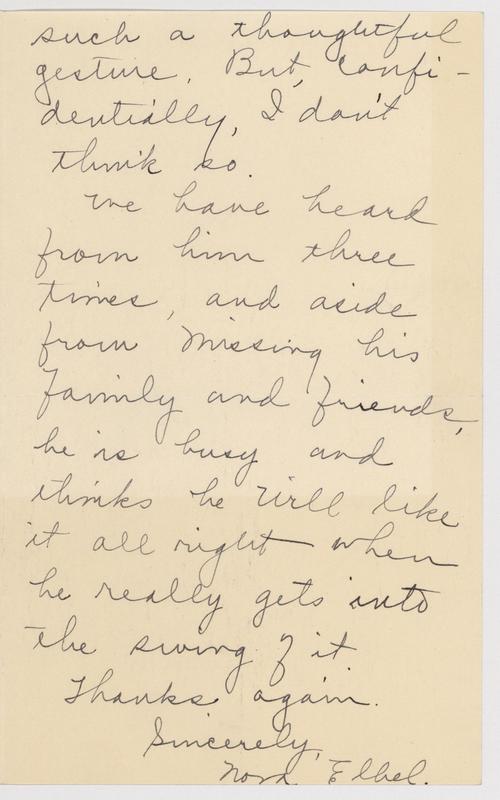 such a thoughtful
gesture. But, confi-
dentially, I don't
think so.
We have heard
from him three
times, and aside
from missing his
family and friends,
he is busy and
thinks he will like
it all right when
he really gets into
the swing of it.
Thanks again.
Sincerely,
Nora Elbel.